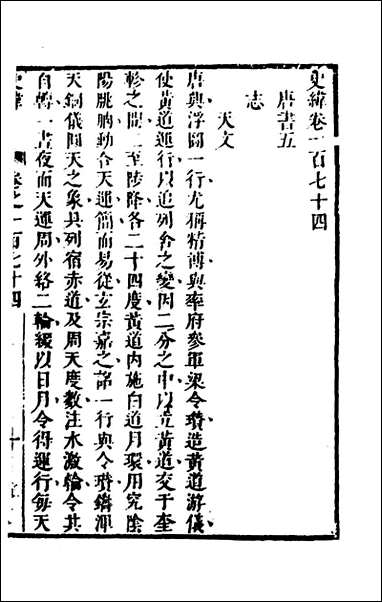 史緯卷一百七十四
唐書五
志
天文
唐興浮圖一行尤稱精博與率府參軍梁令瓚造黃道游儀
使黃道運行以追列舍之變因二分之中以立黃道交于奎
軫之間二至陟降各二十四度黃道內施白道月環用究陰
陽朓朒動合天運簡而易從玄宗嘉之詔一行與令瓚鑄渾
天銅儀圓天之象具列宿赤道及周天度數注水激輪令其
自轉一晝夜而天運周外絡二輪綴以日月令得運行每天
史緯
卷之一百七十四